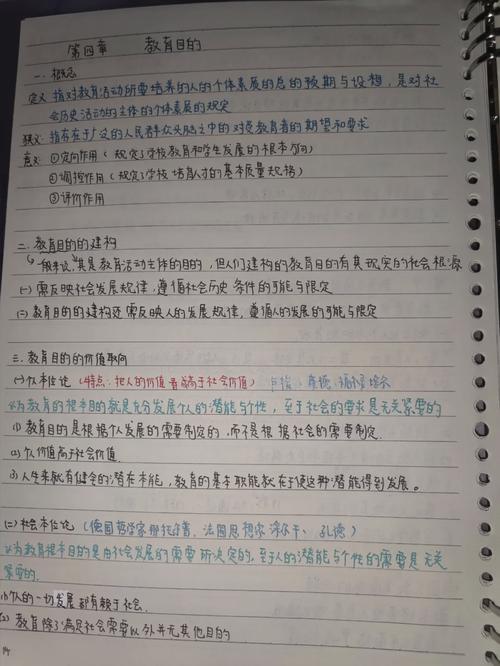 第四章 教育目的
一. 概念
定义: 指对教育活动所要培养的人的个体素质的总的预期与设想, 是对社
会历史活动的主体的个体素质的规定
狭义: 指存在于广泛的人民群众头脑之中的对受教育者的期望和要求
意义: ①定向作用 ( 规定了学校教育和学生发展的根本方向)
②调控作用 ( 规定了学校培育人才的基本质量规格)
③评价作用
二. 教育目的的建构
一般来说, 其是教育活动主体的目的, 但人们建构的教育目的有其现实的社会根源
(一) 需反映社会发展规律, 遵循社会历史条件的可能与限定
(二) 教育目的的建构还需反映人的发展规律, 遵循人的发展的可能与限定
三. 教育目的的价值取向
(一) 个人本位论 (特点: 把人的价值看成高于社会价值) 卢梭 福禄培尔
认为教育的根本目的就是充分发展个人的潜能与个性, 至于社会的要求是无关紧要的
(1) 教育目的是根据个人发展的需要制定的, 而不是根据社会的需要制定.
(2) 个人价值高于社会价值.
(3) 人生来就有健全的潜在本能, 教育的基本职能就在于使这种潜能得到发展。
(二) 社会本位论 (德国哲学家那托普, 法国思想家涂尔干、孔德)
认为教育根本目的是由社会发展的需要所决定的, 至于人的潜能与个性的需要是无关
紧要的.
(1) 个人的一切发展都有赖于社会.
(2) 教育除了满足社会需要以外并无其他目的